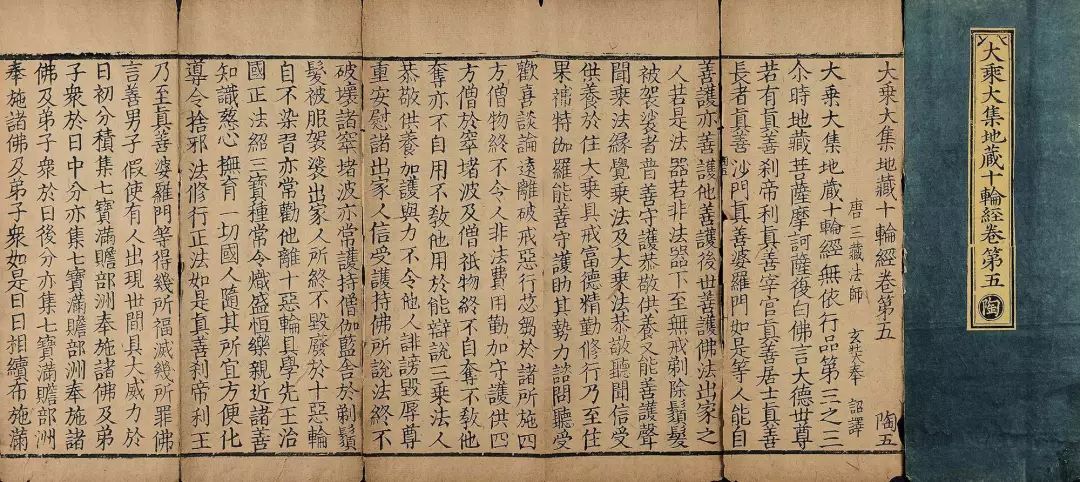 大乘大集地藏十輪經卷第五 陶
大乘大集地藏十輪經卷第五 陶五
唐三藏法師 玄奘奉 詔譯
大乘大集地藏十輪經無依行品第三之三
尒時地藏菩薩摩訶薩復白佛言大德世尊
若有真善剎帝利真善宰官真善居士真善
長者真善沙門真善婆羅門如是等人能自
善護亦善護他善護後世善護佛法出家之
人若是法器若非法器下至無戒剃除鬚髮
被袈裟者普善守護恭敬供養又能善護聲
聞乘法緣覺乘法及大乘法恭敬聽聞信受
供養於住大乘具戒富德精勤修行乃至住
果補特伽羅能善守護助其勢力諮問聽受
歡喜談論遠離破戒惡行苾芻於諸所施四
方僧物終不令人非法費用勤加守護供四
方僧於窣堵波及僧祇物終不自奪不教他
奪亦不自用不教他用於能辯說三乘法人
恭敬供養加護與力不令他人誹謗毀辱尊
重安慰諸出家人信受護持佛所說法終不
破壞諸窣堵波亦常護持僧伽藍舍於剃鬚
髮被服袈裟出家人所終不毀廢於十惡輪
自不染習亦常勸他離十惡輪具學先王治
國正法紹三寶種常令熾盛恒樂親近諸善
知識慈心撫育一切國人隨其所宜方便化
導令捨邪法修行正法如是真善剎帝利王
乃至真善婆羅門等得幾所福滅幾所罪佛
言善男子假使有人出現世間具大威力於
日初分積集七寶滿贍部洲奉施諸佛及弟
子眾於日中分亦集七寶滿贍部洲奉施諸
佛及弟子眾於日後分亦集七寶滿贍部洲
奉施諸佛及弟子眾如是日日相續布施滿